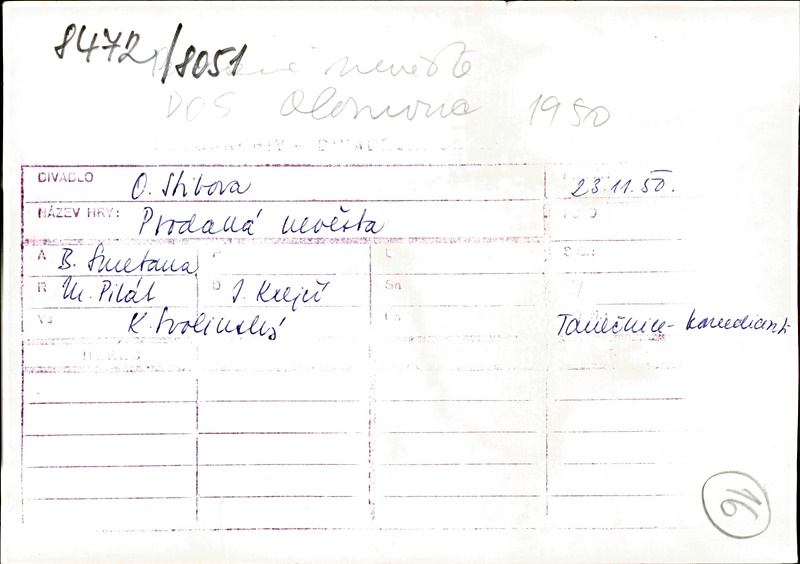 8472/8051
nevěsta
DOS Olomouc 1950
DIVADLO O. Stibora 23.11.50.
NÁZEV HRY: Prodaná nevěsta
A B. Smetana
R M. Pilát D J. Krejčí Sn
K. Svolinský Tanečnice - komedianti
16